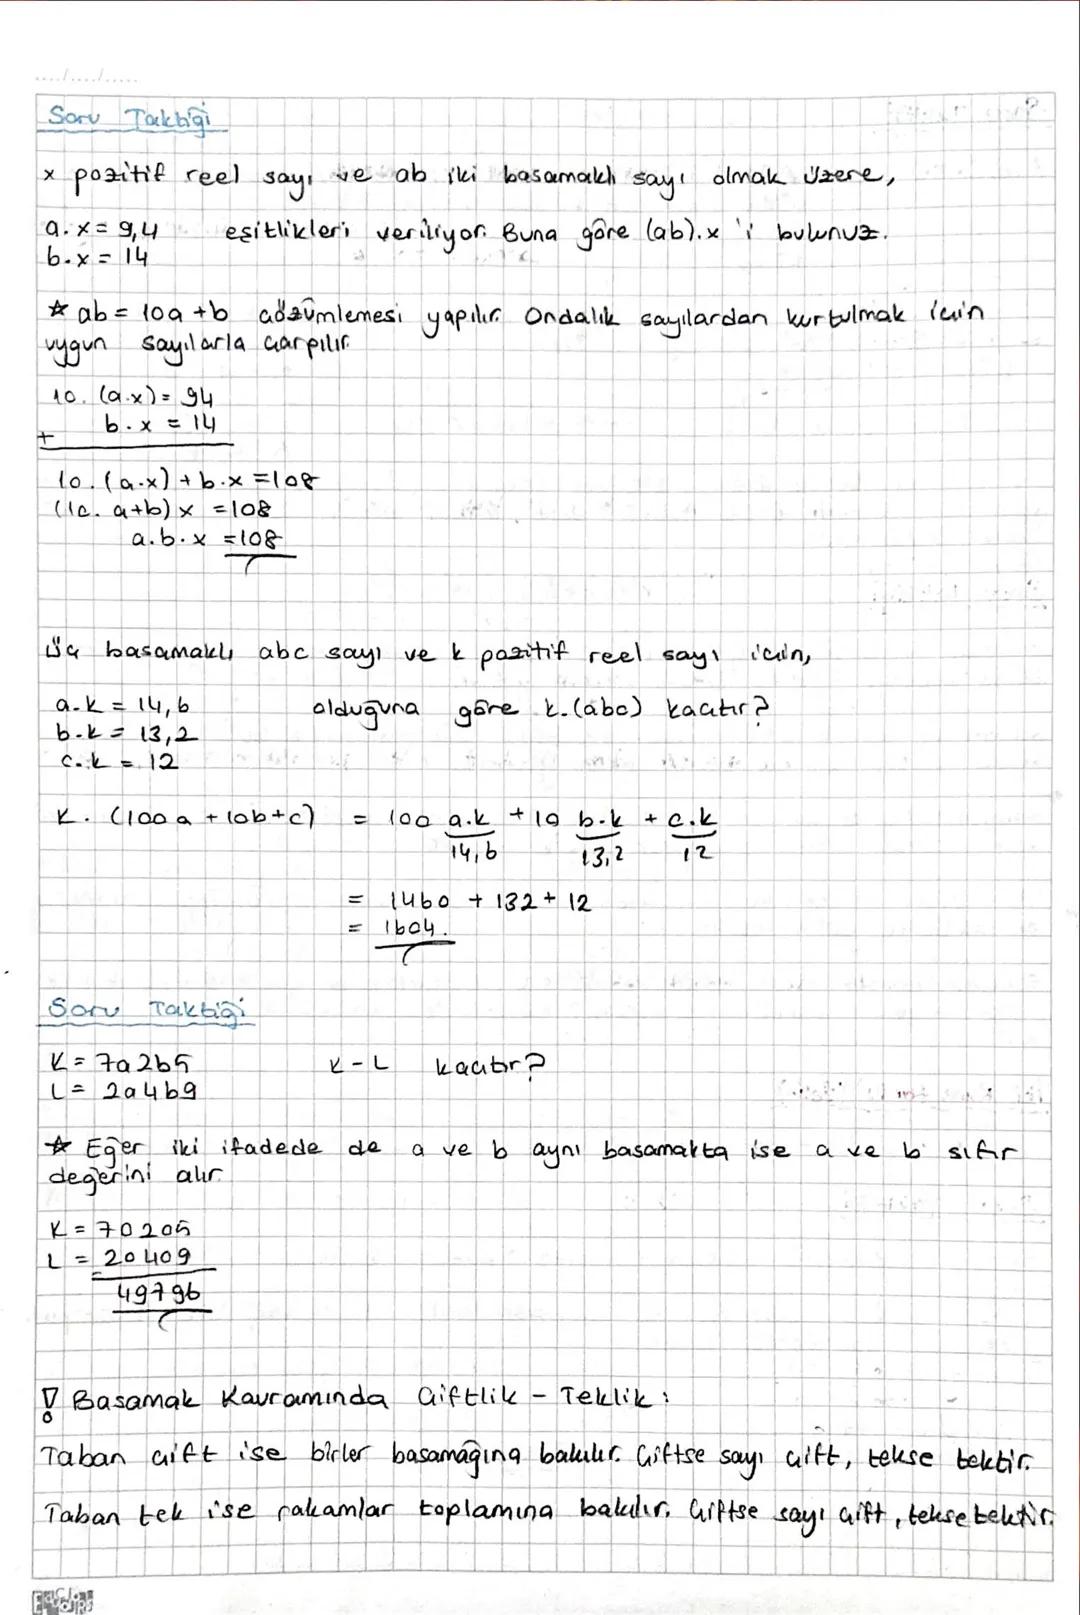 ..../..../.....
Soru Taktiği
x pozitif reel sayı ve ab iki basamaklı sayı olmak üzere,
a.x = 9,4 eşitlikleri veriliyor. Buna göre (ab).x 'i bulunuz.
b.x = 14
☆ ab = 10a + b çözümlemesi yapılır. Ondalık sayılardan kurtulmak için
uygun sayılarla çarpılır.
10. (a.x) = 94
b.x = 14
+
10.(a.x) + b.x = 108
(10. a+b) x = 108
a.b.x = 108
Üç basamaklı abc sayı ve k pozitif reel sayı için,
a.k = 14,6 olduğuna göre k.(abc) kaçtır?
b.k = 13,2
c.k = 12
K. (100a + 10b + c) = 100 a.k + 10 b.k + c.k
14,6 13,2 12
= 1460 + 132 + 12
= 1604.
Soru Taktiği
K = 7a2b5 K - L kaçtır?
L = 2a4b9
☆ Eğer iki ifadede de a ve b aynı basamakta ise a ve b sıfır
değerini alır.
K = 70205
L = 20409
-
49796
! Basamak Kavramında Çiftlik - Teklik :
Taban çift ise birler basamağına bakılır. Çiftse sayı çift, tekse tektir.
Taban tek ise rakamlar toplamına bakılır. Çiftse sayı çift, tekse tektir.